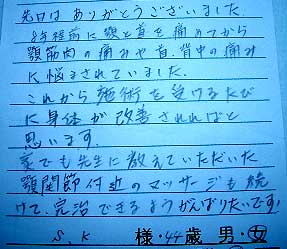 先日はありがとうございました
8年程前に顎と首を痛めてから
顎筋肉の痛みや首.背中の痛み
に悩まされていました.
これから施術を受けるたび
に身体が改善されればと
思います.
家でも先生に教えていただいた
顎関節付近のマッサージも続
けて.完治できるようがんばりたいです!
S.K 様・44歳 男・女